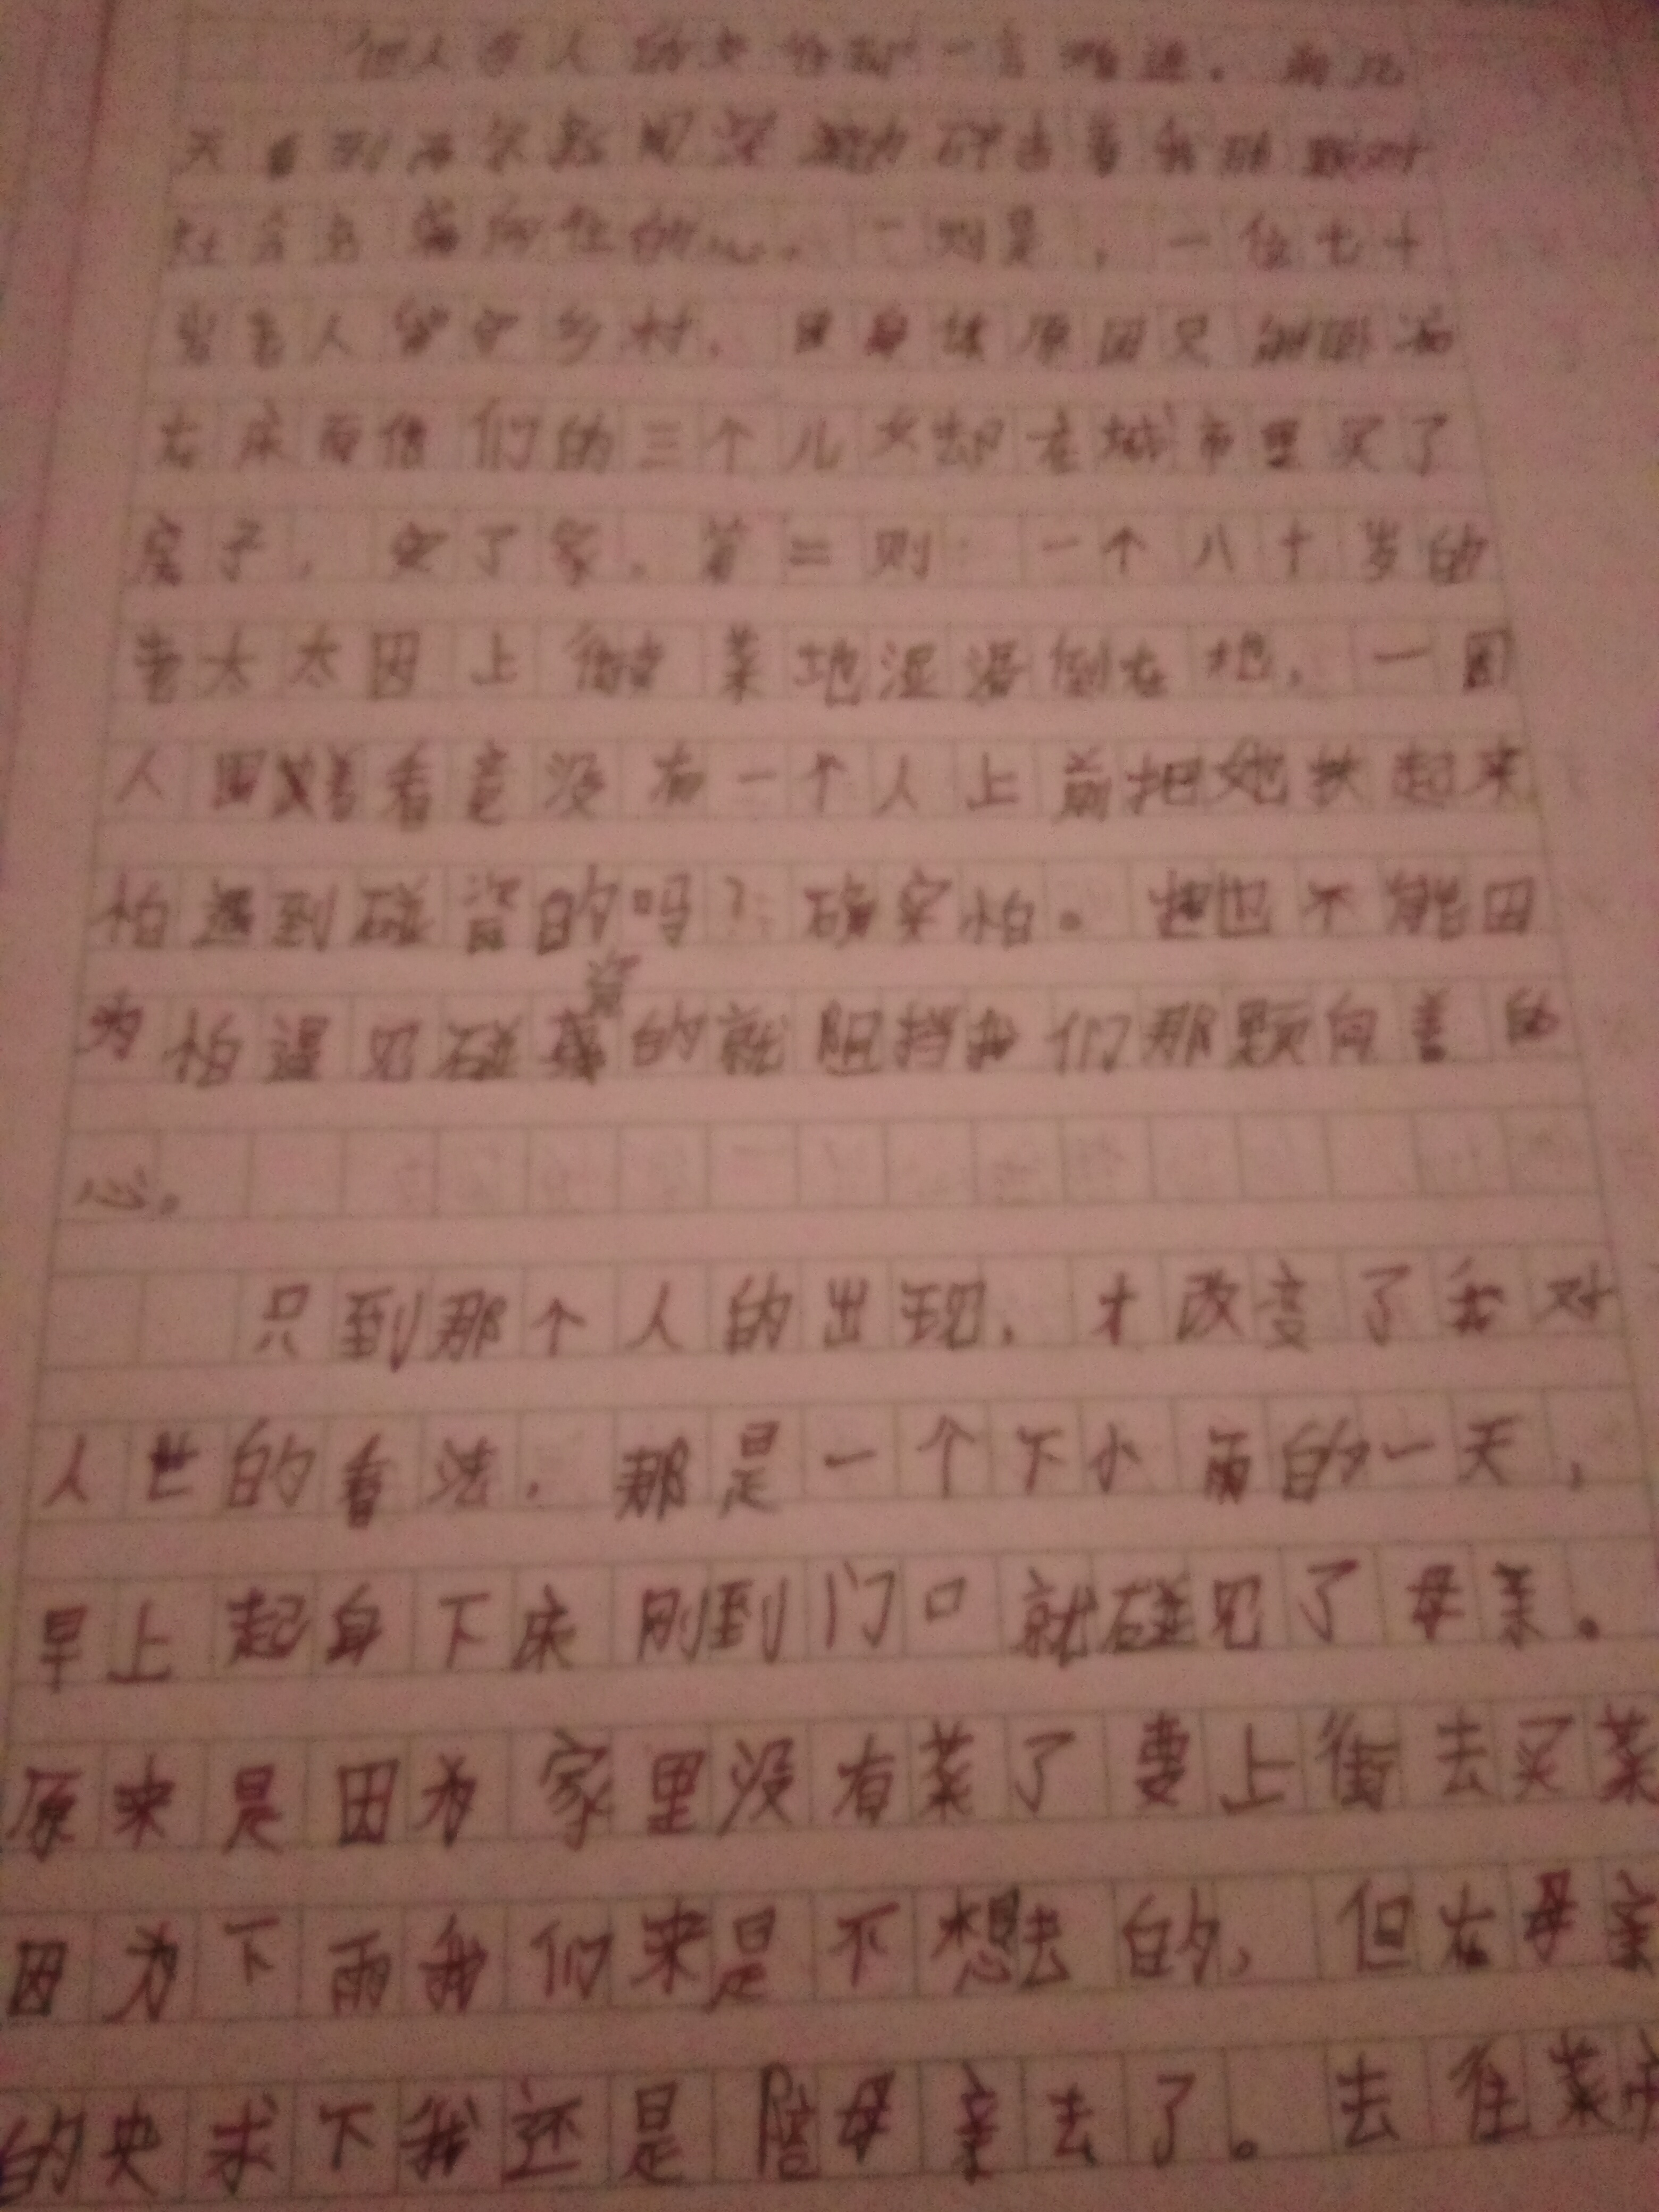 一言难进。前几
天看到
的心。一则是，一位七十
岁老人留守乡村，因身体原因只能
在床而他们的三个儿女却在城市里买了
房子，安了家。第二则：一个八十岁的
老太太因上街卖菜地湿滑倒在地，一团
人围着看竟没有一个人上前把她扶起来
怕遇到碰瓷的吗？确实怕。也不能因
为怕遇见碰瓷的就阻挡我们那颗向善的
心。
只到那个人的出现，才改变了我对
人世的看法，那是一个下小雨的一天，
早上起身下床刚到门口就碰见了母亲。
原来是因为家里没有菜了要上街去买菜
因为下雨我们来是不想去的，但在母亲
的央求下我还是陪母亲去了。去往菜市